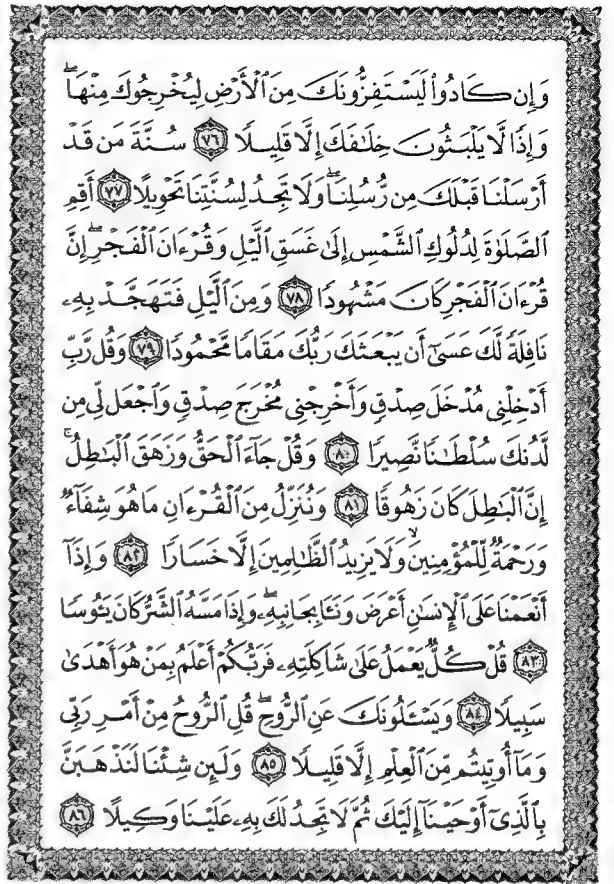 وَإِن كَادُواْ لَيَسْتَفِزُّونَكَ مِنَ ٱلْأَرْضِ لِيُخْرِجُوكَ مِنْهَاۖ
وَإِذًا لَّا يَلْبَثُونَ خِلَٰفَكَ إِلَّا قَلِيلًا ٧٦ سُنَّةَ مَن قَدْ
أَرْسَلْنَا قَبْلَكَ مِن رُّسُلِنَاۖ وَلَا تَجِدُ لِسُنَّتِنَا تَحْوِيلًا ٧٧ أَقِمِ
ٱلصَّلَوٰةَ لِدُلُوكِ ٱلشَّمْسِ إِلَىٰ غَسَقِ ٱلَّيْلِ وَقُرْءَانَ ٱلْفَجْرِۖ إِنَّ
قُرْءَانَ ٱلْفَجْرِ كَانَ مَشْهُودًا ٧٨ وَمِنَ ٱلَّيْلِ فَتَهَجَّدْ بِهِۦ
نَافِلَةً لَّكَ عَسَىٰٓ أَن يَبْعَثَكَ رَبُّكَ مَقَامًا مَّحْمُودًا ٧٩ وَقُل رَّبِّ
أَدْخِلْنِى مُدْخَلَ صِدْقٍ وَأَخْرِجْنِى مُخْرَجَ صِدْقٍ وَٱجْعَل لِّى مِن
لَّدُنكَ سُلْطَٰنًا نَّصِيرًا ٨٠ وَقُلْ جَآءَ ٱلْحَقُّ وَزَهَقَ ٱلْبَٰطِلُۚ
إِنَّ ٱلْبَٰطِلَ كَانَ زَهُوقًا ٨١ وَنُنَزِّلُ مِنَ ٱلْقُرْءَانِ مَا هُوَ شِفَآءٌ
وَرَحْمَةٌ لِّلْمُؤْمِنِينَۙ وَلَا يَزِيدُ ٱلظَّٰلِمِينَ إِلَّا خَسَارًا ٨٢ وَإِذَآ
أَنْعَمْنَا عَلَى ٱلْإِنسَٰنِ أَعْرَضَ وَنَـَٔا بِجَانِبِهِۦۖ وَإِذَا مَسَّهُ ٱلشَّرُّ كَانَ يَـُٔوسًا
٨٣ قُلْ كُلٌّ يَعْمَلُ عَلَىٰ شَاكِلَتِهِۦ فَرَبُّكُمْ أَعْلَمُ بِمَنْ هُوَ أَهْدَىٰ
سَبِيلًا ٨٤ وَيَسْـَٔلُونَكَ عَنِ ٱلرُّوحِۖ قُلِ ٱلرُّوحُ مِنْ أَمْرِ رَبِّى
وَمَآ أُوتِيتُم مِّنَ ٱلْعِلْمِ إِلَّا قَلِيلًا ٨٥ وَلَئِن شِئْنَا لَنَذْهَبَنَّ
بِٱلَّذِىٓ أَوْحَيْنَآ إِلَيْكَ ثُمَّ لَا تَجِدُ لَكَ بِهِۦ عَلَيْنَا وَكِيلًا ٨٦